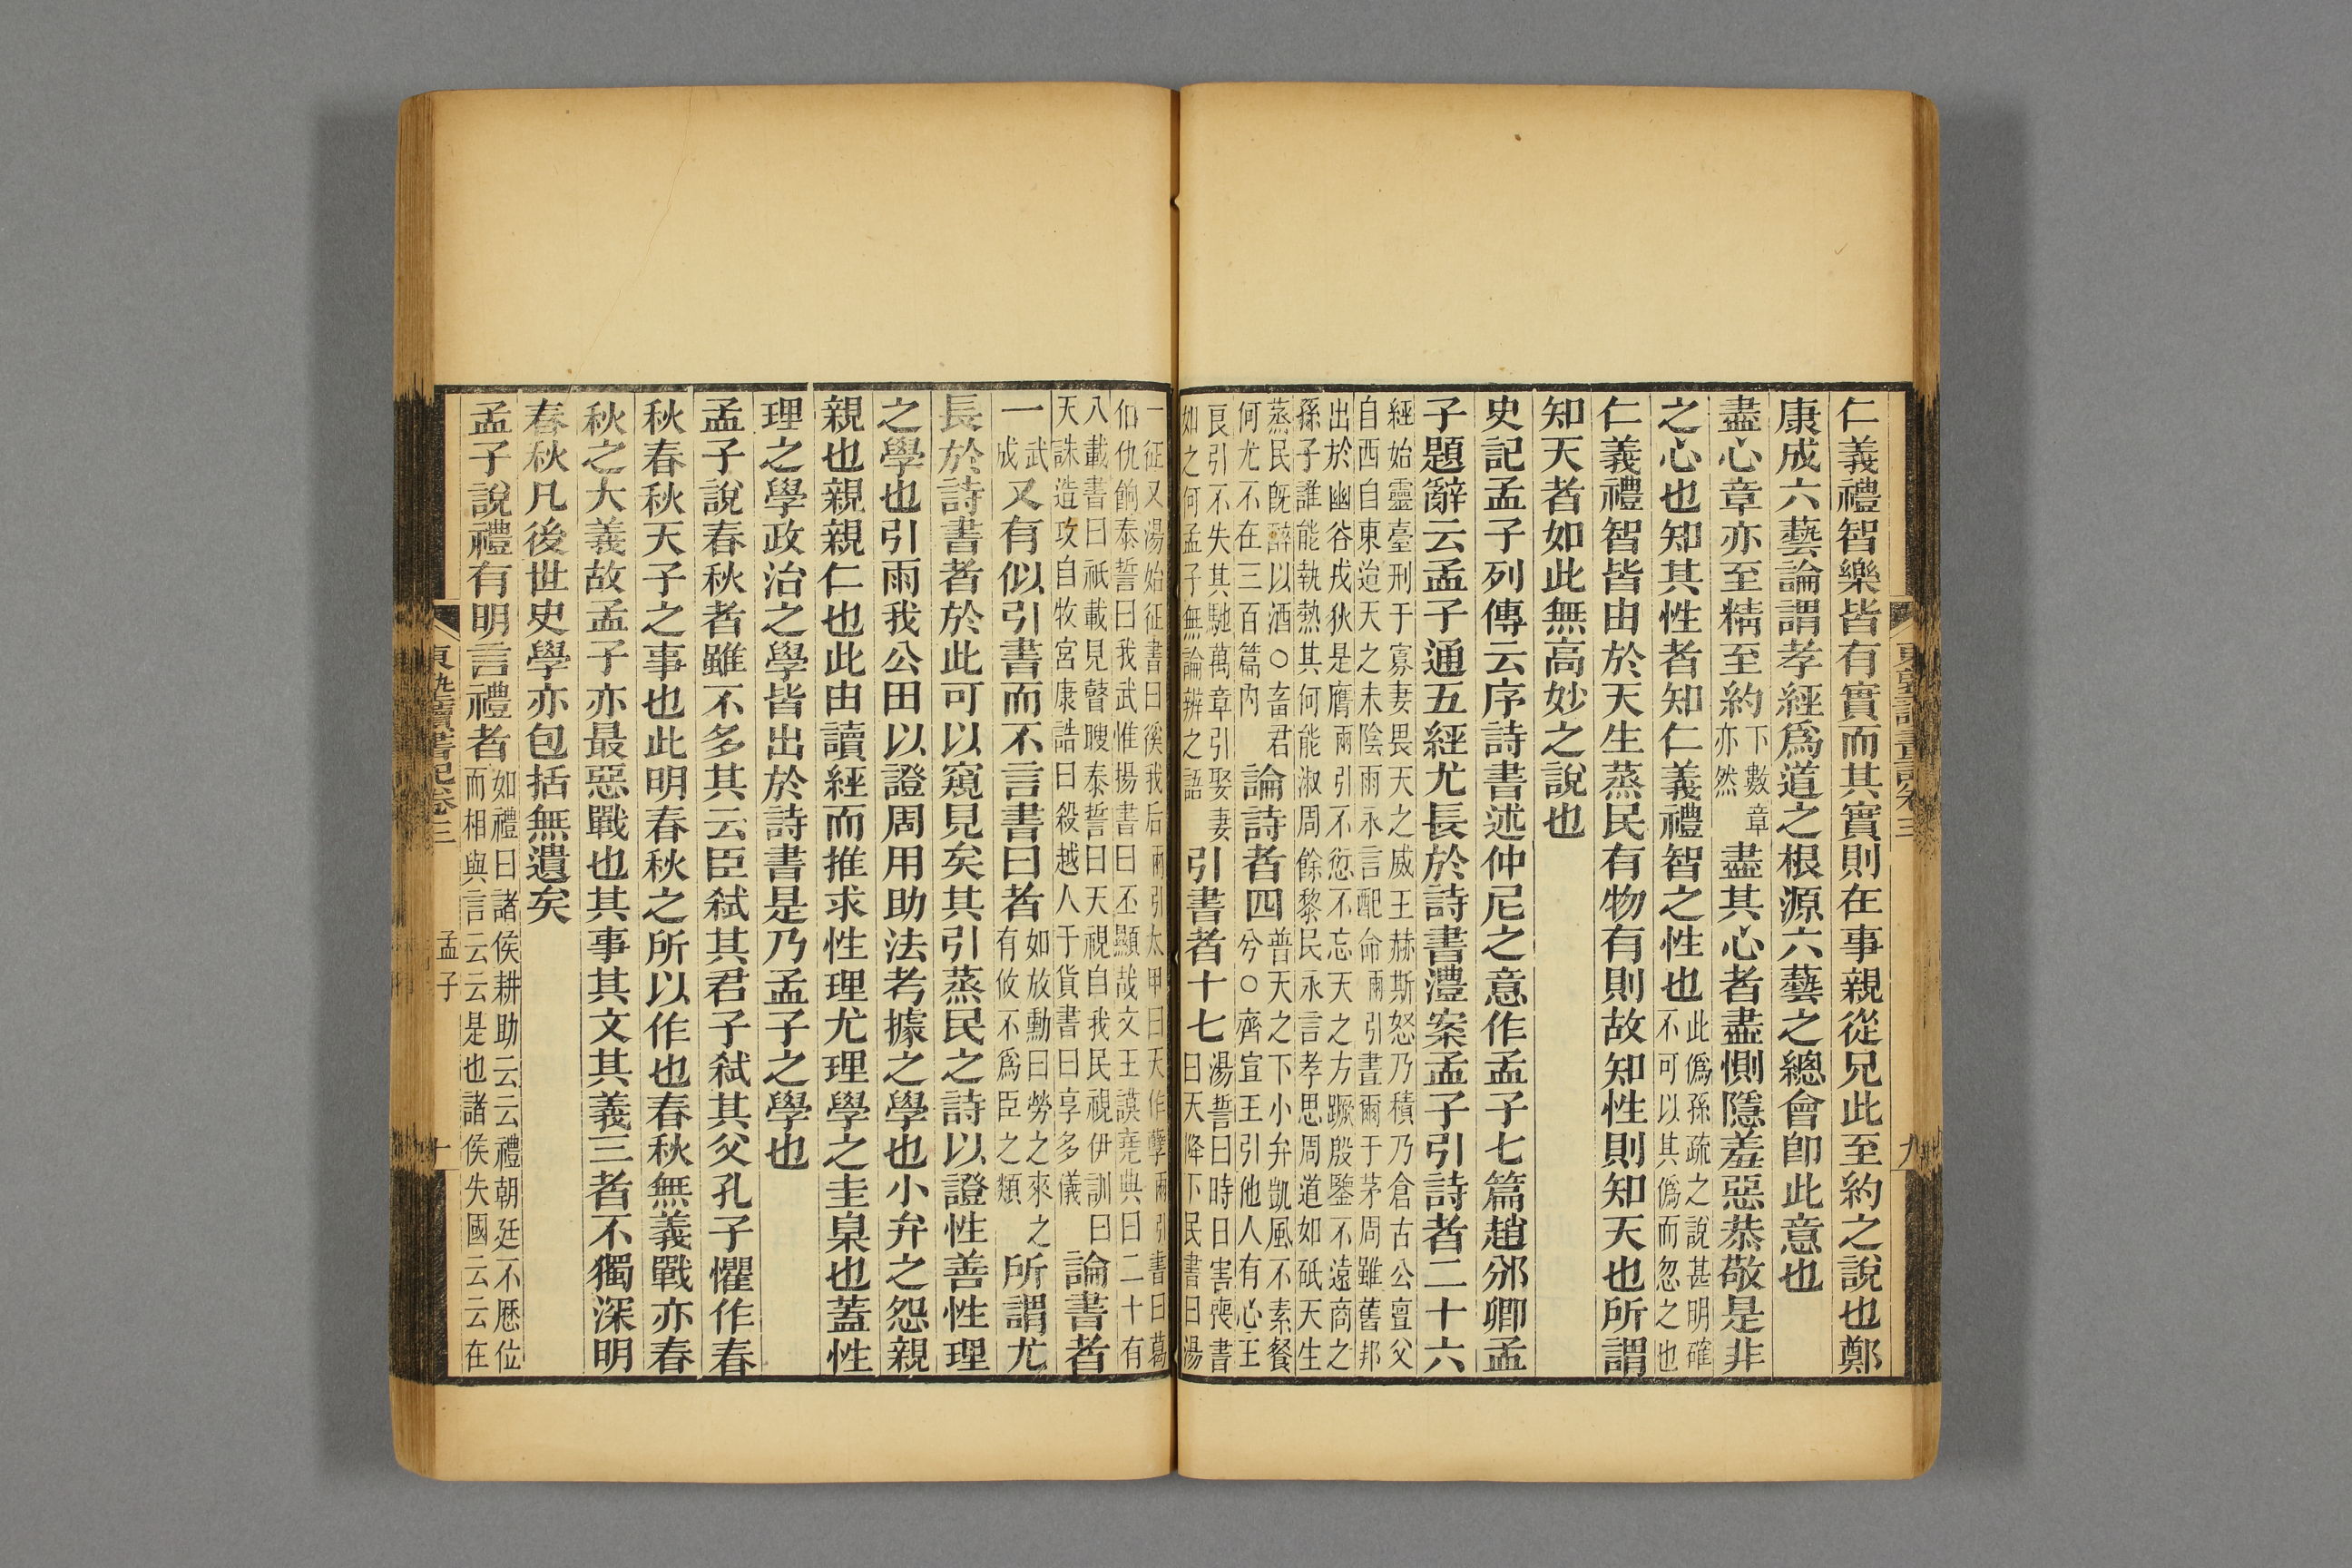 仁義禮智樂皆有實而其實則在事親從兄此至約之說也鄭
康成六藝論謂孝經爲道之根源六藝之總會卽此意也
盡心章亦至精至約下數章亦然盡其心者盡惻隱羞惡恭敬是非
之心也知其性者知仁義禮智之性也此僞孫疏之說甚明確不可以其僞而忽之也
仁義禮智皆由於天生蒸民有物有則故知性則知天也所謂
知天者如此無高妙之說也
史記孟子列傳云序詩書述仲尼之意作孟子七篇趙邠卿孟
子題辭云孟子通五經尤長於詩書澧案孟子引詩者二十六
經始靈臺刑于寡妻畏天之威王赫斯怒乃積乃倉古公亶父
自西自東迨天之未陰雨永言配命兩引晝爾于茅周雖舊邦
出於幽谷戎狄是膺兩引不愆不忘天之方蹶殷鑒不遠商之
孫子誰能執熱其何能淑周餘黎民永言孝思周道如砥天生
蒸民既醉以酒○畜君何尤不在三百篇內論詩者四普天之下小弁凱風不素餐兮○齊宣王引他人有心王
良引不失其馳萬章引娶妻如之何孟子無論辨之語引書者十七湯誓曰時日害喪書曰天降下民書曰湯
一征又湯始征書曰徯我后兩引太甲曰天作孽兩引書曰葛
伯仇餉泰誓曰我武惟揚書曰丕顯哉文王謨堯典曰二十有
八載書曰祇載見瞽瞍泰誓曰天視自我民視伊訓曰天誅造攻自牧宮康誥曰殺越人于貨書曰享多儀論書者
一武成又有似引書而不言書曰者如放勳曰勞之來之有攸不爲臣之類所謂尤
長於詩書者於此可以窺見矣其引蒸民之詩以證性善性理
之學也引雨我公田以證周用助法考據之學也小弁之怨親
親也親親仁也此由讀經而推求性理尤理學之圭臬也蓋性
理之學政治之學皆出於詩書是乃孟子之學也
孟子說春秋者雖不多其云臣弑其君子弑其父孔子懼作春
秋春秋天子之事也此明春秋之所以作也春秋無義戰亦春
秋之大義故孟子亦最惡戰也其事其文其義三者不獨深明
春秋凡後世史學亦包括無遺矣
孟子說禮有明言禮者如禮曰諸侯耕助云云禮朝廷不歷位而相與言云云是也諸侯失國云云在
東塾讀書記卷三 孟子 十